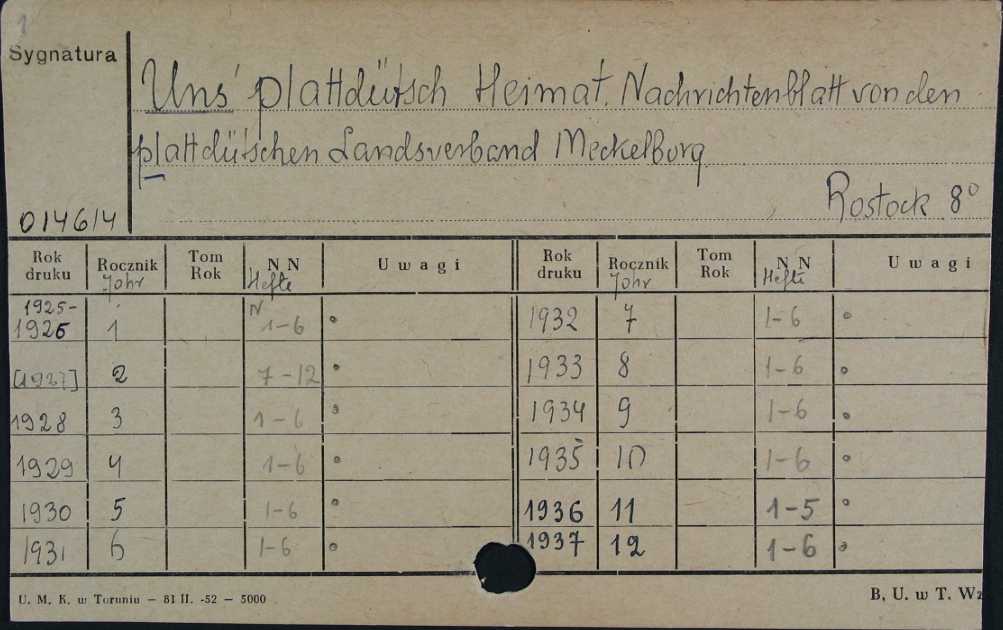 1
Sygnatura
Uns' plattdütsch Heimat. Nachrichtenblatt von den
plattdütschen Landsverband Meckelborg
Rostock 8°
0146/4
Rok druku Rocznik Tom Rok N N U w a g i Rok druku Rocznik Tom Rok N N U w a g i
Johr Hefte Johr Hefte
1925-1926 1 N 1-6 ° 1932 7 1-6 °
[1927] 2 7-12 ° 1933 8 1-6 °
1928 3 1-6 ° 1934 9 1-6 °
1929 4 1-6 ° 1935 10 1-6 °
1930 5 1-6 ° 1936 11 1-5 °
1931 6 1-6 ° 1937 12 1-6 °
U. M. K. w Toruniu — 81 II. -52 — 5000
B. U. w T. Wz